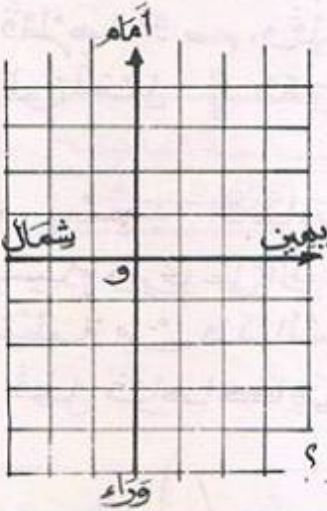 أَمَام
شِمَال
يمين
و
؟
وَرَاء